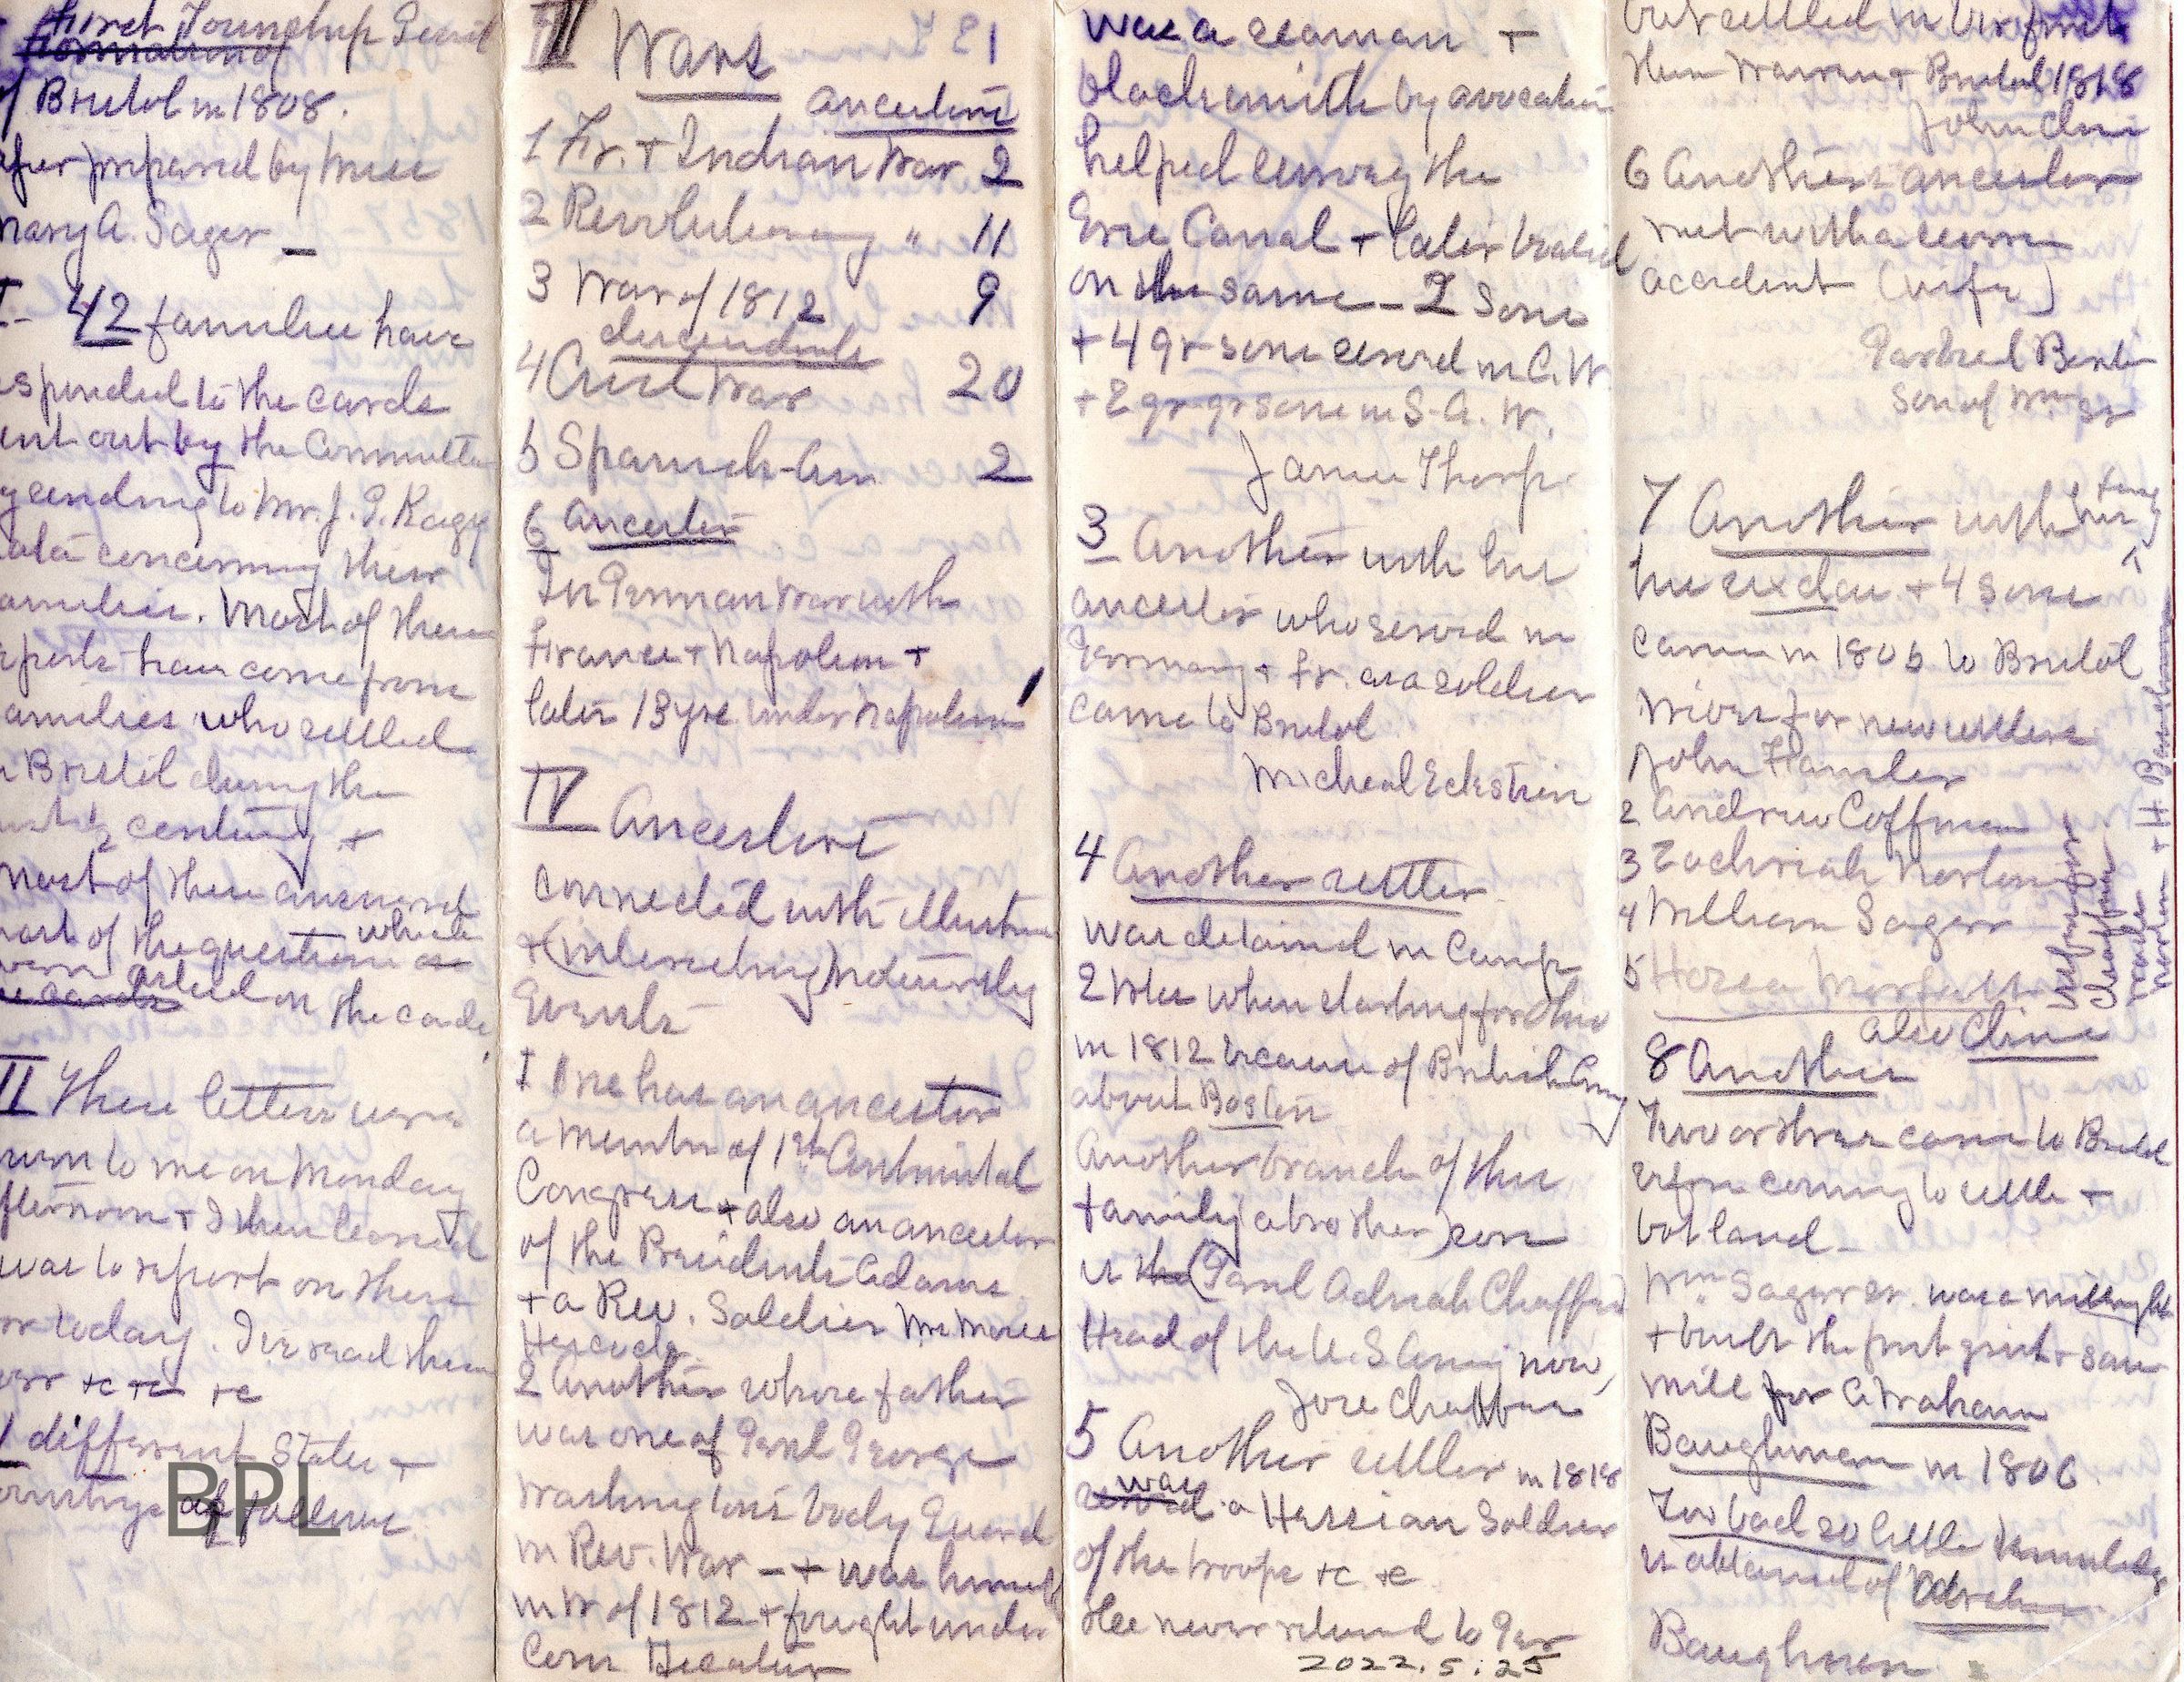 First Township Social
formation of
of Bristol in 1808.
prepared by Miss
Mary A. Sager _
I - 42 families have
esponded to the cards
ent out by the Committee
y sending to Mr. J. P. Kagy
ata concerning their
amilies. Most of these
eports have come from
amilies who settled
n Bristol during the
1/2 century +
most of these answered
part of the questions which
were asked on the cards
the cards
II These letters were
given to me on Monday
afternoon + I then learned
was to report on them
or today. I've read them
over +c +c +c
different States +
ountrys as follows
BPL
III Wars
ancestors
1 Fr. + Indian War 2
2 Revolutionary " 11
3 War of 1812 9
descendents
4 Civil War 20
5 Spanish-Am 2
6 Ancestor
In German War with
France + Napoleon +
later 13 yrs under Napoleon 1
IV Ancestors
connected with illustrious
+ (interesting) noteworthy
Events
1 One has an ancestor
a member of 1st Continental
Congress + also an ancestor
of the Presidents Adams
+ a Rev. Soldier Mr Morse
2 Another whose father
was one of Genl George
Washington's body Guard
in Rev. War - + was himself
in W of 1812 + fought under
Com Decatur
was a seaman +
blacksmith by avocation
helped survey the
Erie Canal + later
on the same - 2 Sons
+ 4 gr-sons served in C.W.
+ 2 gr-gr sons in S.A.W.
James Thorp
3 Another with his
ancestor who served in
Germany + Fr. as a soldier
came to Bristol
Micheal Eckstein
4 Another settler
was detained in Camp
2 Wks when starting for Ohio
in 1812 because of British Army
about Boston
Another branch of this
family (a brother) son
is the (Genl Adnah Chaffee
Head of the U.S Army now)
Jose Chaffee
5 Another settler in 1818
was
served a Hessian Soldier
of the troops +c +c
He never returned to Ger
2022.5.25
but settled in Virginia
then Warren + Bristol 1818
John Cline
6 Another ancestor
met with a severe
accident (wife)
Son of Wm Sr
7 Another with
his six dau + 4 sons
came in 1806 to Bristol
Wives for new settlers
1 John Hansler
2 Andrew Coffman
3 Zachriah Norton
4 William Sager
5 Hosea
also Cline
8 Another
Two or three came to Bristol
before coming to settle +
bot land -
Wm Sager Sr. was a millwright
+ built the first grist + saw
mill for Abraham
Baughman in 1806.
Too bad so little knowledge
is obtained of
Baughman